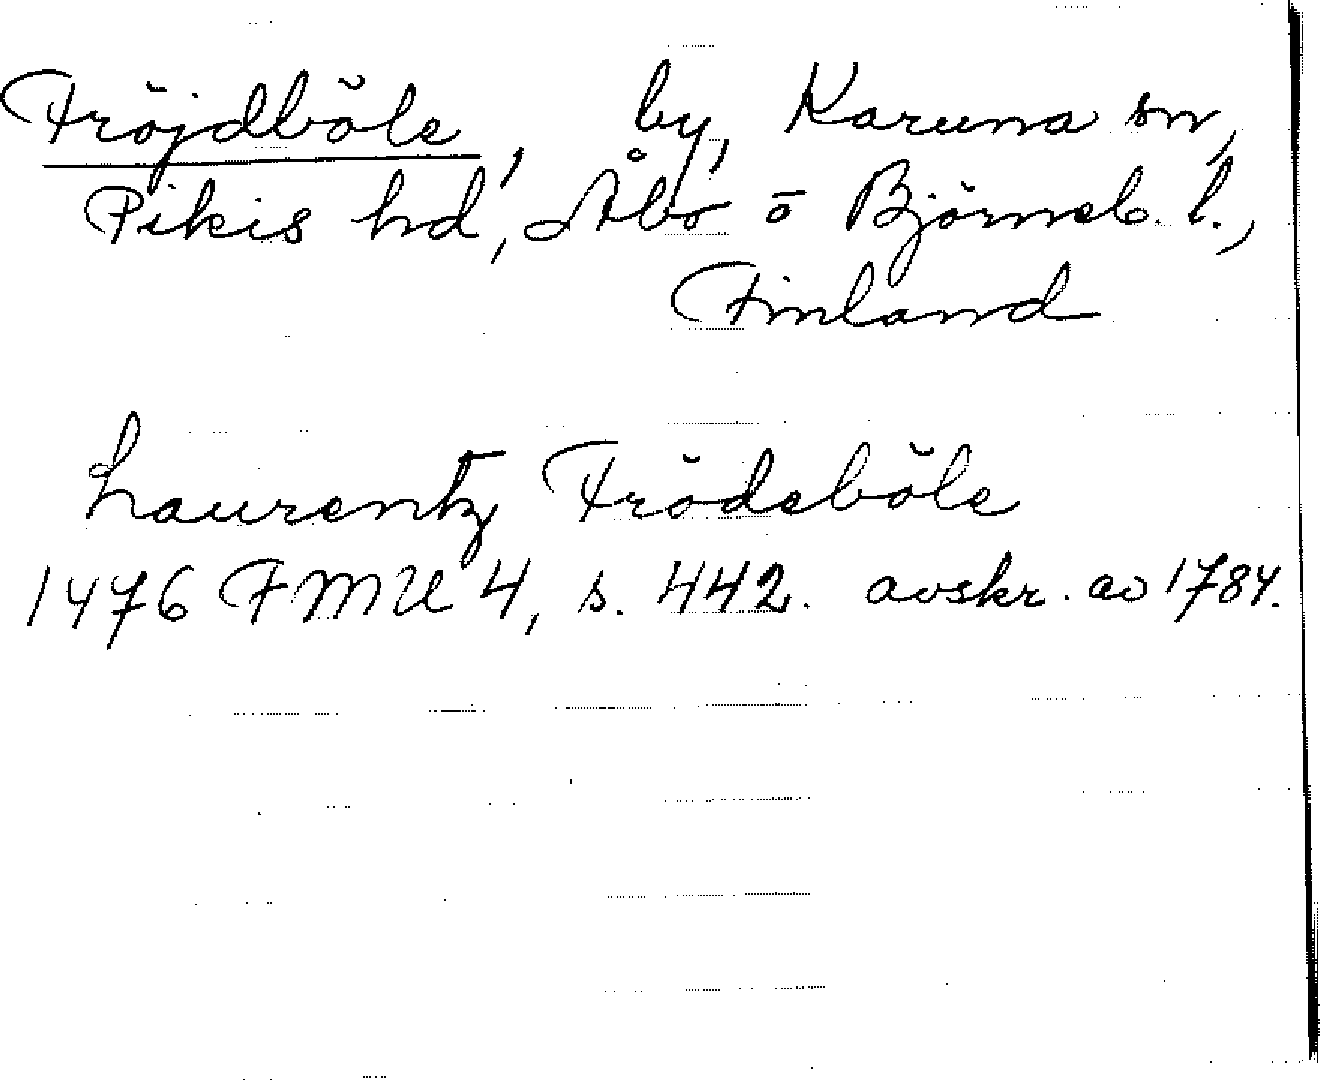 Fröjdböle, by, Karuna sn,
Pikis hd, Åbo o Björneb. l.,
Finland
Laurentz Frödeböle
1476 FMU 4, s. 442. avskr. av 1784.